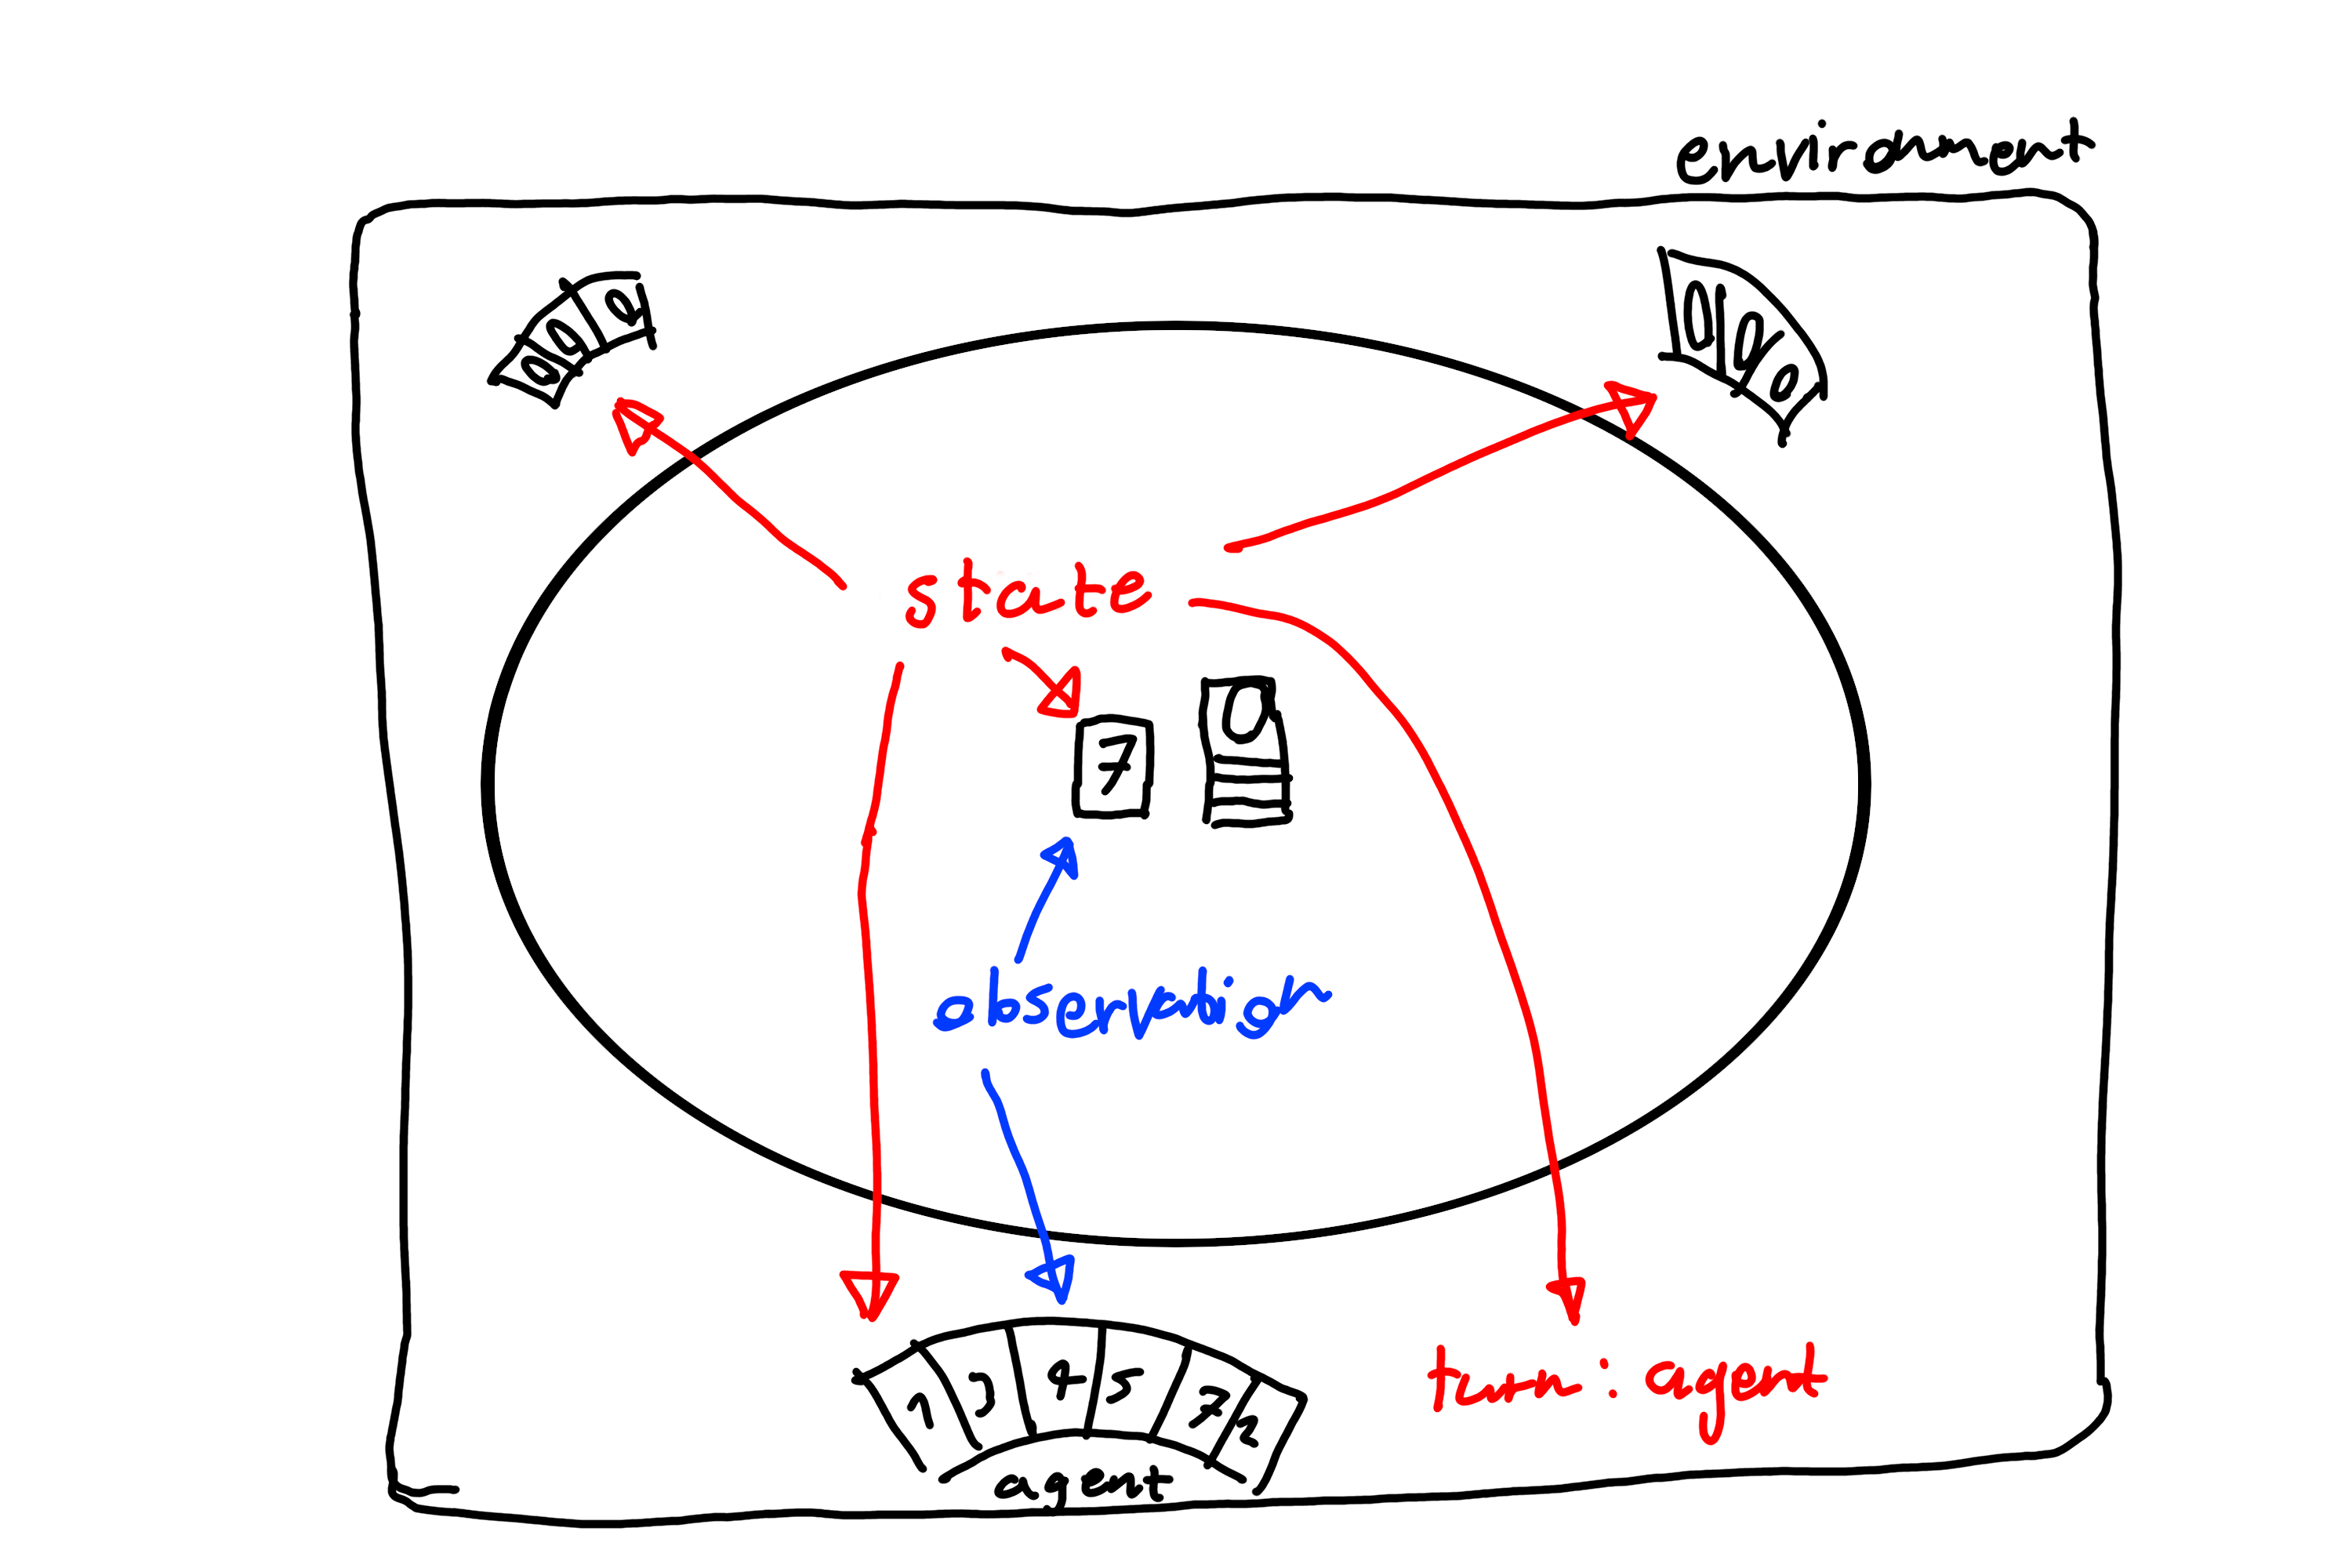 environment
state
7
observation
1 3 4 5 7 2
turn: agent
agent